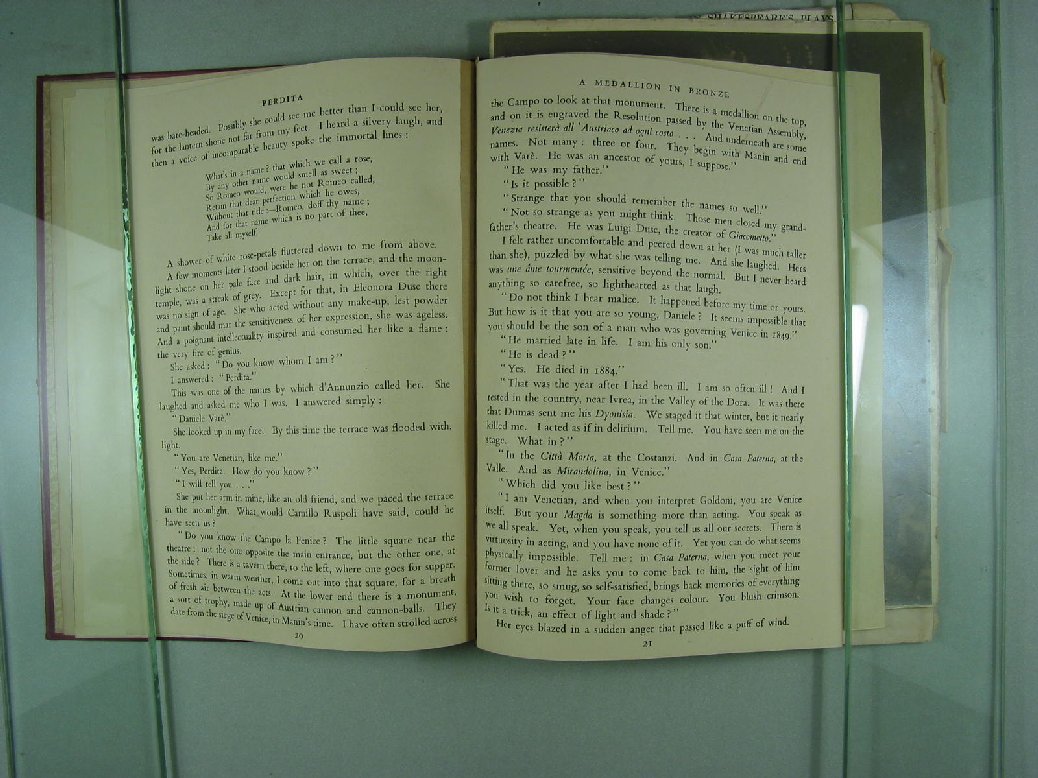 SHAKESPEARE'S PLAYS
PERDITA
was bare-headed. Possibly she could see me better than I could see her,
for the lantern shone not far from my feet. I heard a silvery laugh, and
then a voice of incomparable beauty spoke the immortal lines :
What's in a name? that which we call a rose,
By any other name would smell as sweet ;
So Romeo would, were he not Romeo called,
Retain that dear perfection which he owes,
Without that title :—Romeo, doff thy name ;
And for that name which is no part of thee,
Take all myself
A shower of white rose-petals fluttered down to me from above.
A few moments later I stood beside her on the terrace, and the moon-
light shone on her pale face and dark hair, in which, over the right
temple, was a streak of grey. Except for that, in Eleonora Duse there
was no sign of age. She who acted without any make-up, lest powder
and paint should mar the sensitiveness of her expression, she was ageless.
And a poignant intellectuality inspired and consumed her like a flame :
the very fire of genius.
She asked : "Do you know whom I am ?"
I answered : "Perdita."
This was one of the names by which d'Annunzio called her. She
laughed and asked me who I was. I answered simply :
"Daniele Varè."
She looked up in my face. By this time the terrace was flooded with
light.
"You are Venetian, like me."
"Yes, Perdita. How do you know ?"
"I will tell you . . ."
She put her arm in mine, like an old friend, and we paced the terrace
in the moonlight. What would Camillo Ruspoli have said, could he
have seen us ?
"Do you know the Campo la Fenice ? The little square near the
theatre : not the one opposite the main entrance, but the other one, at
the side ? There is a tavern there, to the left, where one goes for supper.
Sometimes, in warm weather, I come out into that square, for a breath
of fresh air between the acts. At the lower end there is a monument,
a sort of trophy, made up of Austrian cannon and cannon-balls. They
date from the siege of Venice, in Manin's time. I have often strolled across
20
A MEDALLION IN BRONZE
the Campo to look at that monument. There is a medallion on the top,
and on it is engraved the Resolution passed by the Venetian Assembly,
Venezia resisterà all' Austriaco ad ogni costo . . . And underneath are some
names. Not many : three or four. They begin with Manin and end
with Varè. He was an ancestor of yours, I suppose."
"He was my father."
"Is it possible ?"
"Strange that you should remember the names so well."
"Not so strange as you might think. Those men closed my grand-
father's theatre. He was Luigi Duse, the creator of Giacometto."
I felt rather uncomfortable and peered down at her (I was much taller
than she), puzzled by what she was telling me. And she laughed. Hers
was une âme tourmentée, sensitive beyond the normal. But I never heard
anything so carefree, so lighthearted as that laugh.
"Do not think I bear malice. It happened before my time or yours.
But how is it that you are so young, Daniele ? It seems impossible that
you should be the son of a man who was governing Venice in 1849."
"He married late in life. I am his only son."
"He is dead ?"
"Yes. He died in 1884."
"That was the year after I had been ill. I am so often ill ! And I
rested in the country, near Ivrea, in the Valley of the Dora. It was there
that Dumas sent me his Dyonisia. We staged it that winter, but it nearly
killed me. I acted as if in delirium. Tell me. You have seen me on the
stage. What in ?"
"In the Città Morta, at the Costanzi. And in Casa Paterna, at the
Valle. And as Mirandolina, in Venice."
"Which did you like best ?"
"I am Venetian, and when you interpret Goldoni, you are Venice
itself. But your Magda is something more than acting. You speak as
we all speak. Yet, when you speak, you tell us all our secrets. There is
virtuosity in acting, and you have none of it. Yet you can do what seems
physically impossible. Tell me : in Casa Paterna, when you meet your
former lover and he asks you to come back to him, the sight of him
sitting there, so smug, so self-satisfied, brings back memories of everything
you wish to forget. Your face changes colour. You blush crimson.
Is it a trick, an effect of light and shade ?"
Her eyes blazed in a sudden anger that passed like a puff of wind.
21